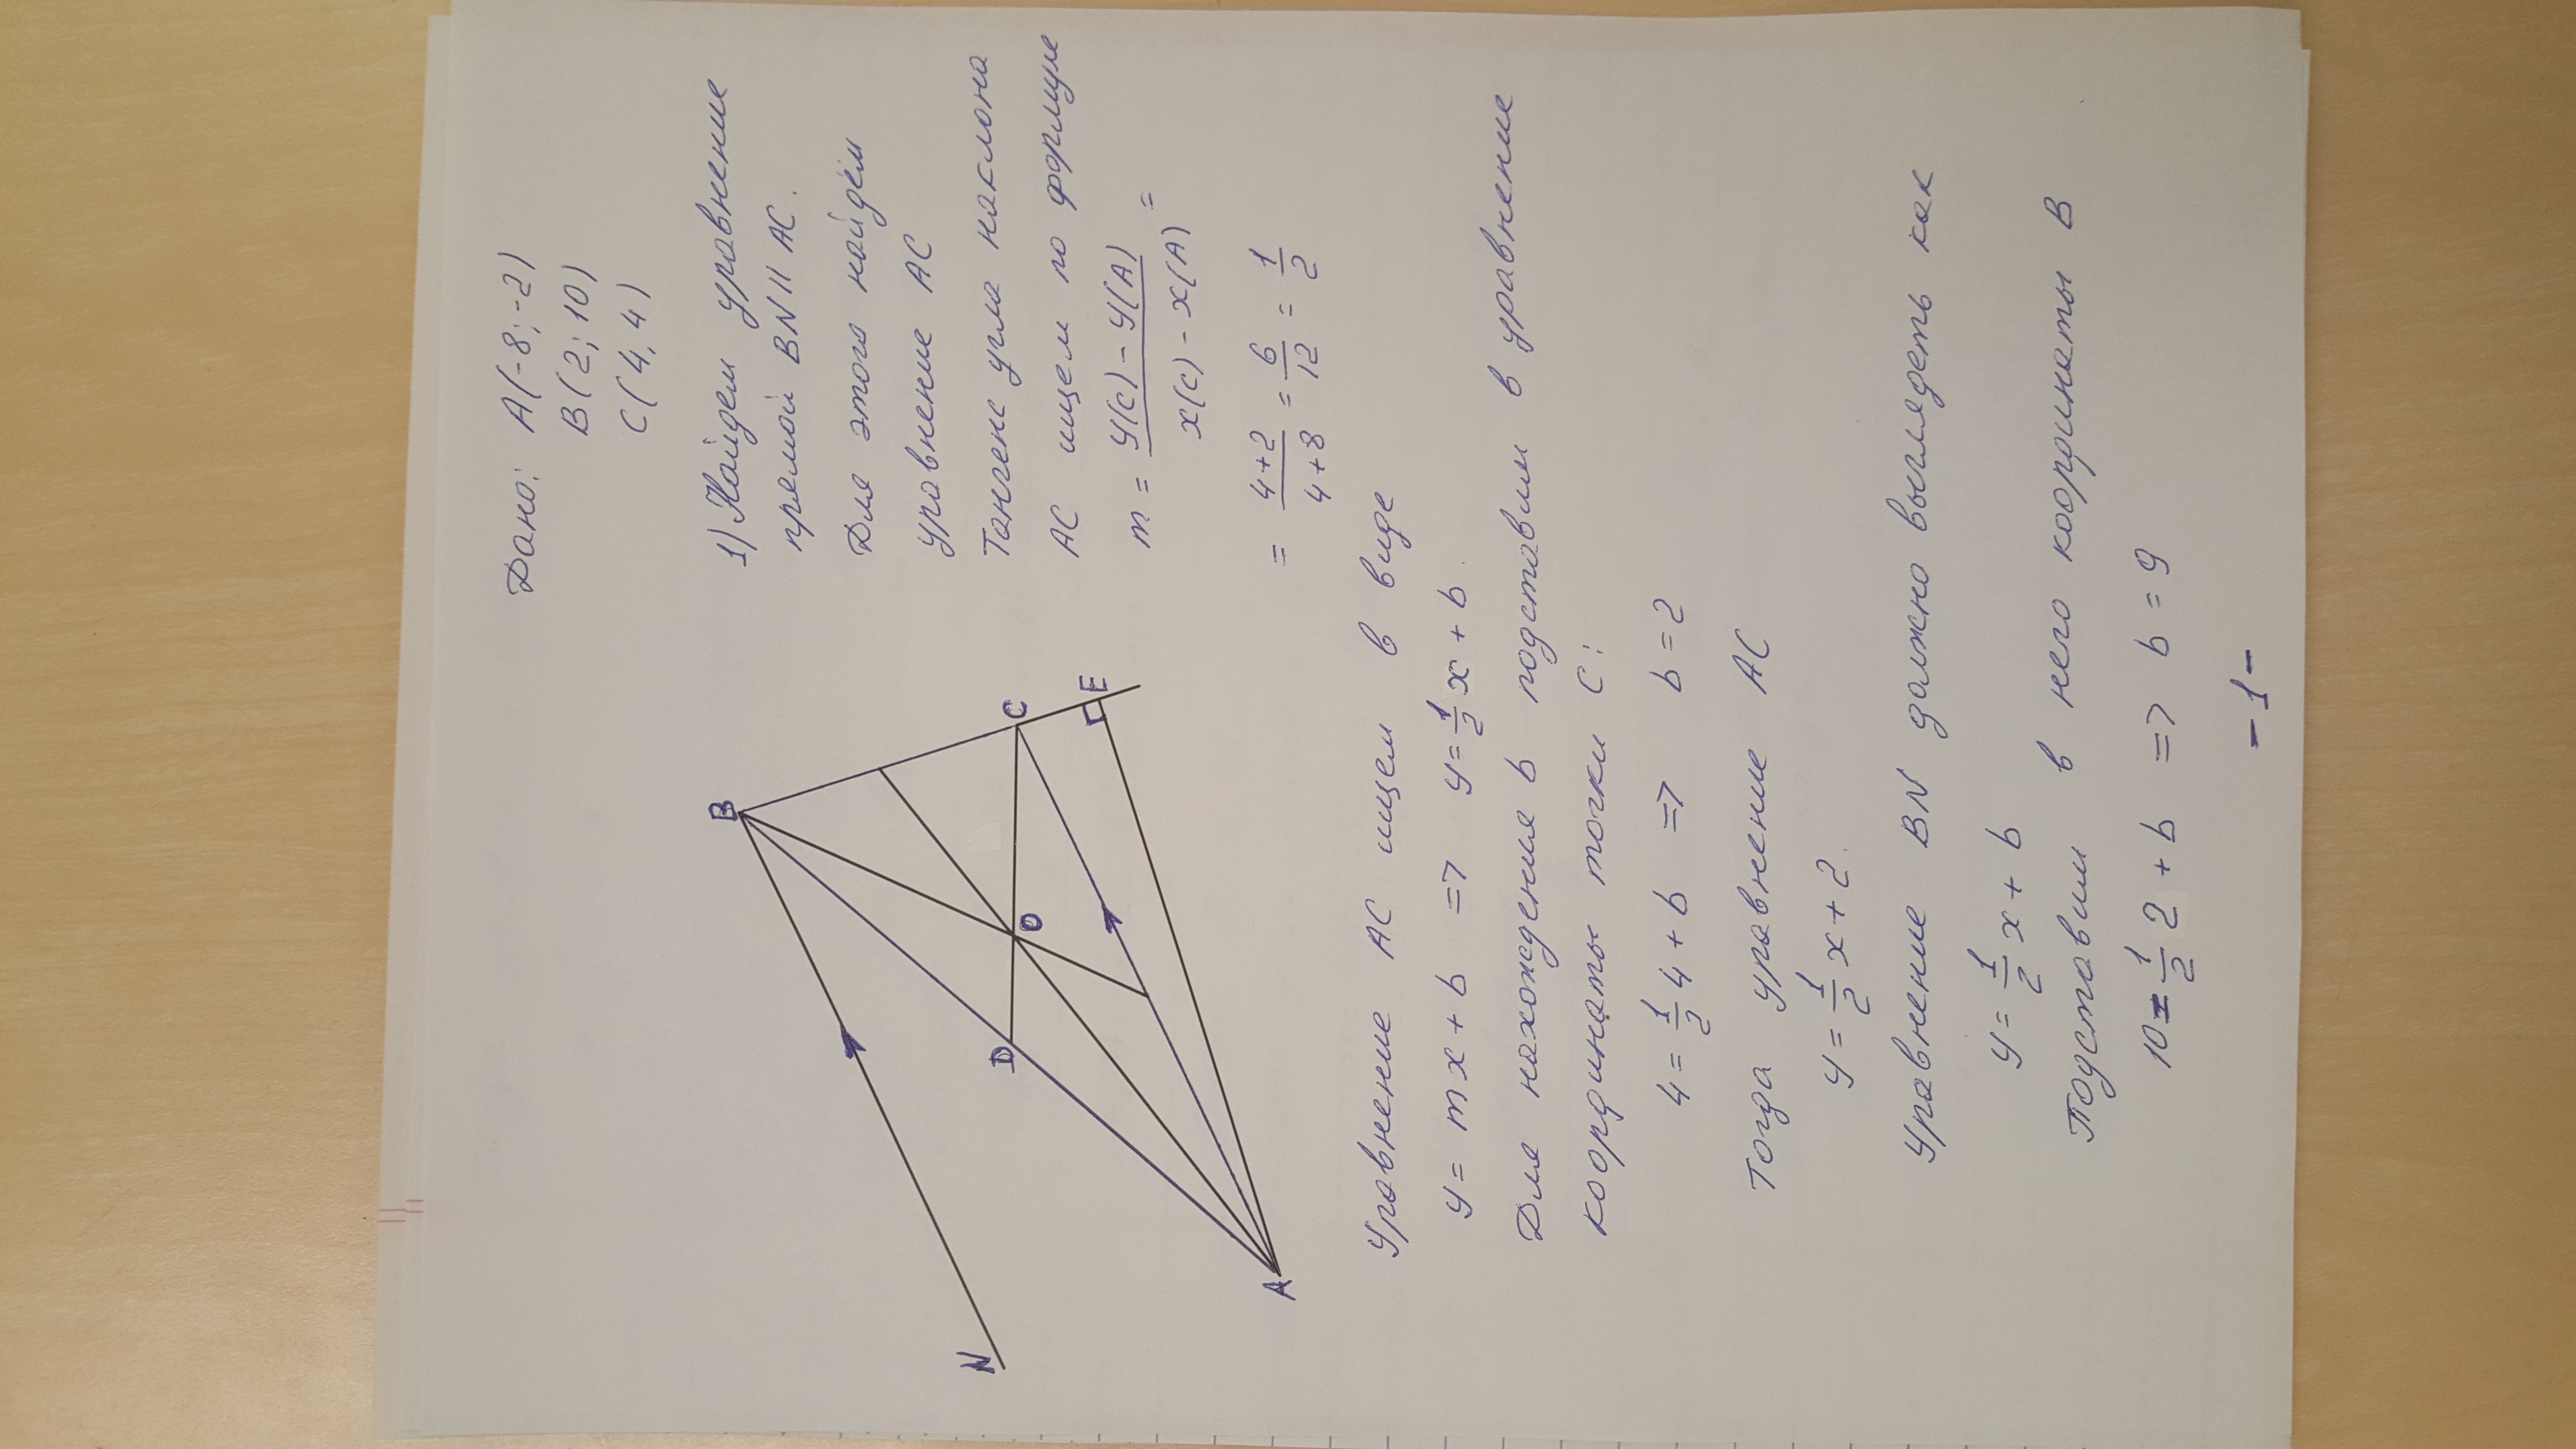 Дано: A(-8; -2)
B(2; 10)
C(4; 4)
B
N
D
O
C
E
A
1) Найдем уравнение
прямой BN || AC.
Для этого найдём
уравнение AC
Тангенс угла наклона
AC ищем по формуле
m = y(c) - y(A) / x(c) - x(A) =
= 4+2 / 4+8 = 6/12 = 1/2
Уравнение AC ищем в виде
y = mx + b => y = 1/2 x + b.
Для нахождения b подставим в уравнение
координаты точки C:
4 = 1/2 4 + b => b = 2
Тогда уравнение AC
y = 1/2 x + 2.
Уравнение BN должно выглядеть как
y = 1/2 x + b
Подставим в него координаты B
10 = 1/2 2 + b => b = 9
- 1 -